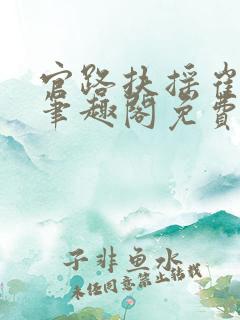 官路扶摇崔
笔趣阁免费
子非鱼水
未经同意禁止转载